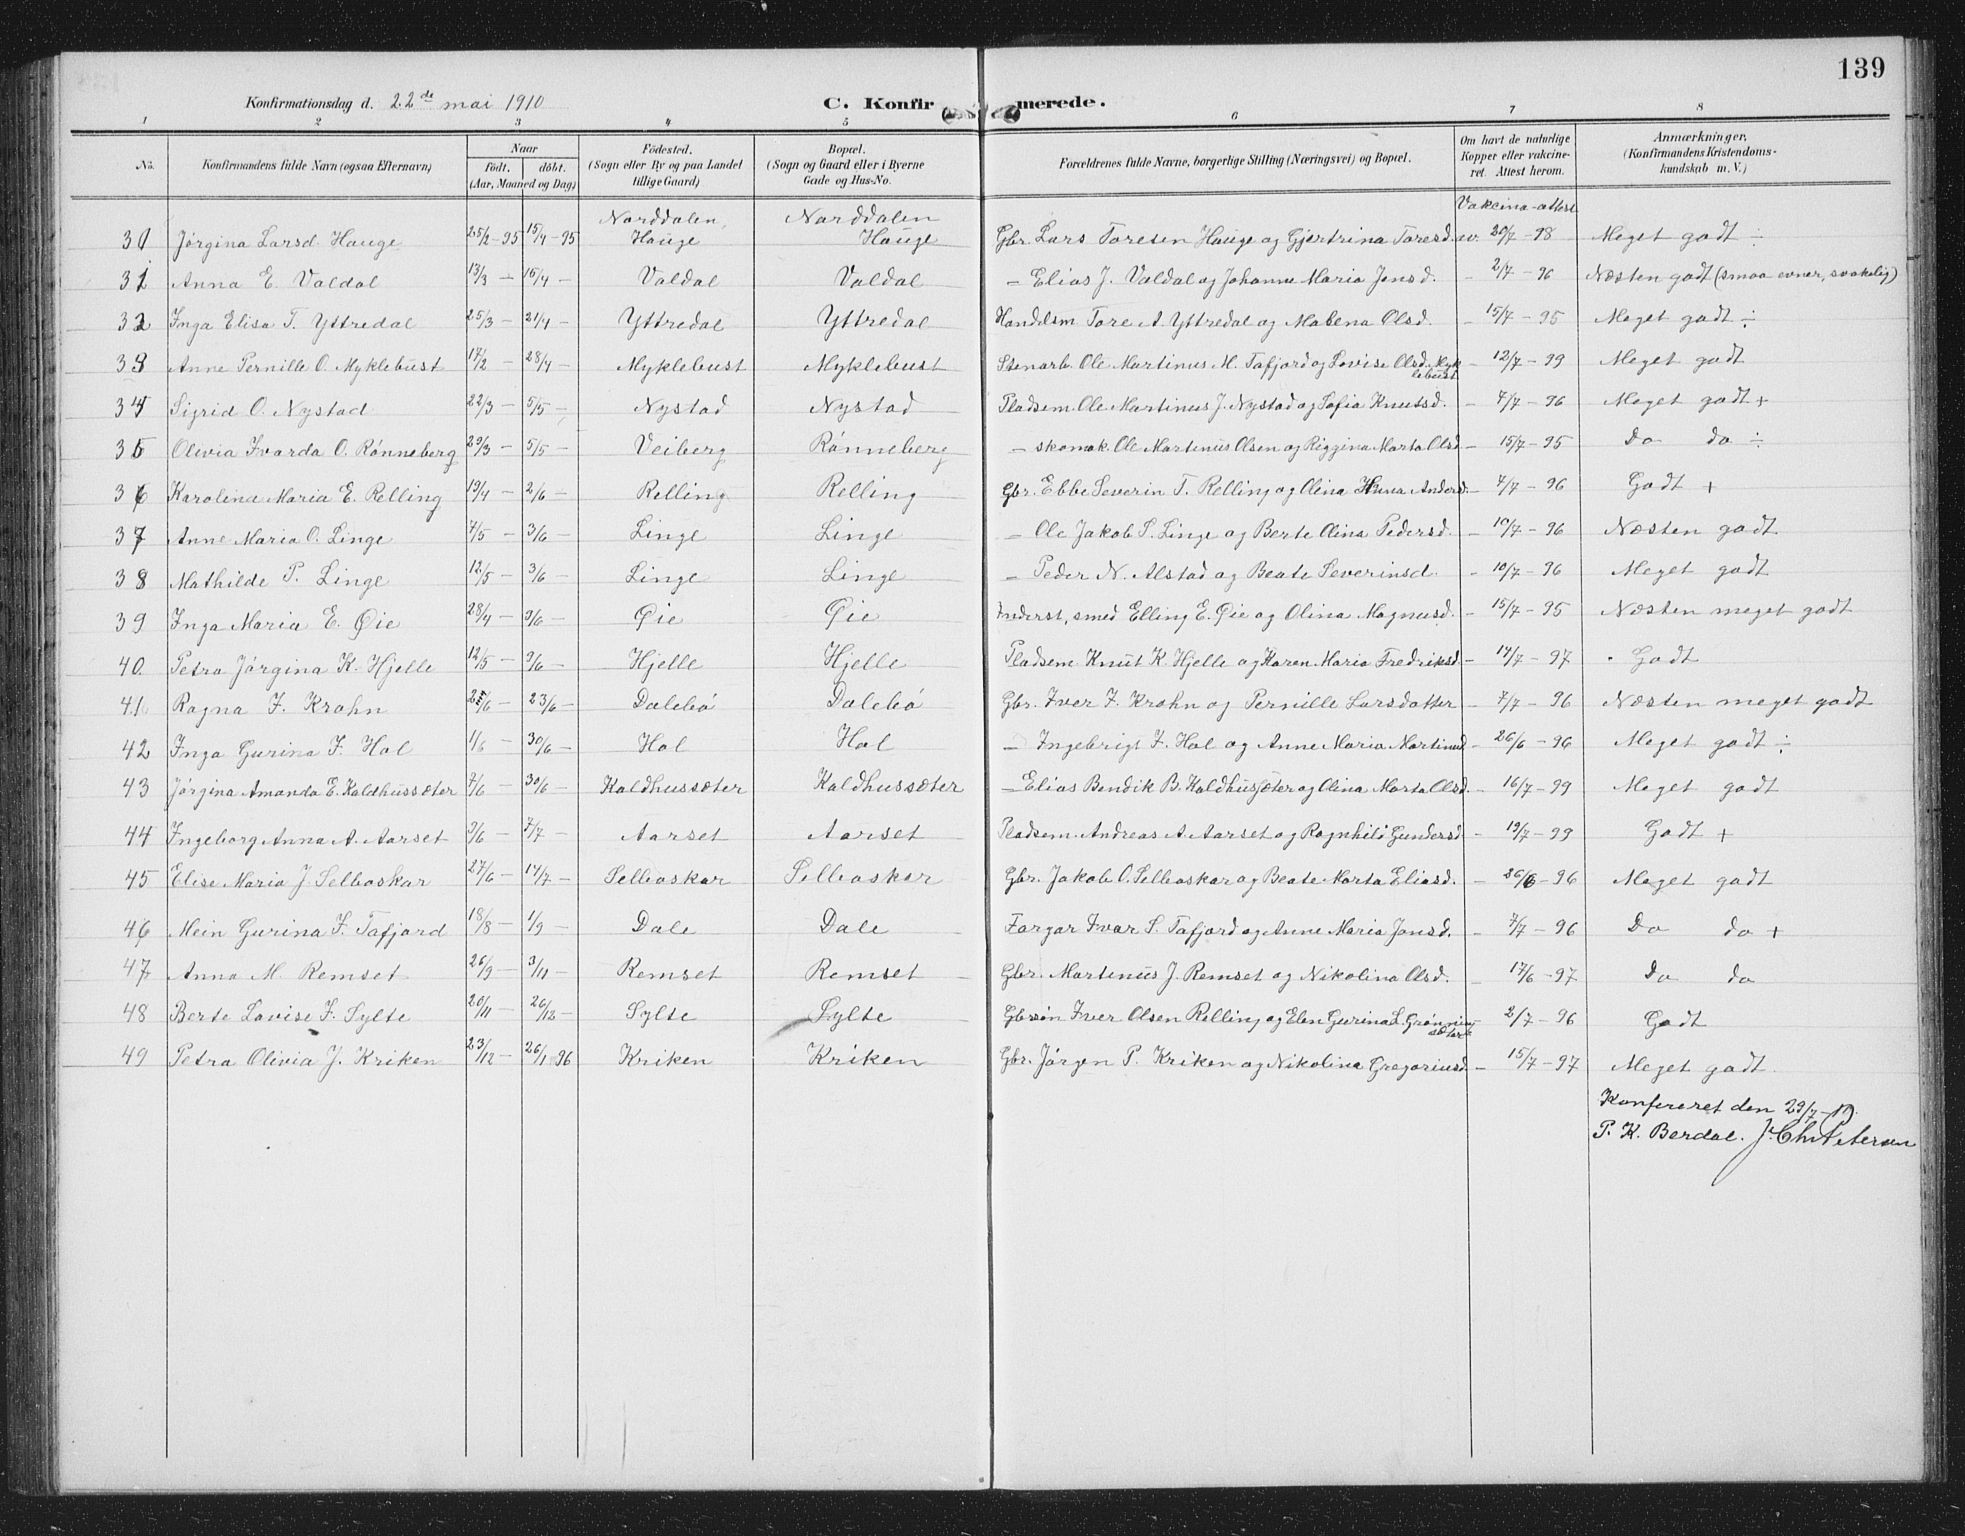 139
Konfirmationsdag d. 22de mai 1910 C. Konfirmerede.
1 2 3 4 5 6 7 8
No. Konfirmandens fulde Navn (ogsaa Efternavn) Naar födt. döbt. (Aar, Maaned og Dag) Födested. (Sogn eller By og paa Landet tillige Gaard) Bopæl. (Sogn og Gaard eller i Byerne Gade og Hus-No. Forældrenes fulde Navne, borgerlige Stilling (Næringsvei) og Bopæl. Om havt de naturlige Kopper eller vakcineret. Attest herom. Anmærkninger. (Konfirmandens Kristendomskundskab m. V.)
Vakcina-attest
Norddalen, Norddalen
30 Jørgina Larsd. Hauge 25/2-95 15/4-95 Hauge Hauge Gbr. Lars Toresen Hauge og Gjertrina Toresd. av. 20/7-98 Meget godt ÷
31 Anna E. Valdal 13/3 — 15/4 — Valdal Valdal — Elias J. Valdal og Johanne Maria Jonsd. - 2/7 - 96 Næsten godt (smaa evner, svakelig)
32 Inga Elisa T. Yttredal 25/3 — 21/4 — Yttredal Yttredal Handelsm Tore A. Yttredal og Mabena Olsd. - 15/7 - 95 Meget godt ÷
33 Anne Pernille O. Myklebust 17/2 — 28/4 — Myklebust Myklebust Stenarb. Ole Martinus M. Tafjord og Lovise Olsd. Myklebust - 12/7 - 99 Meget godt
34 Sigrid O. Nystad 22/3 — 5/5 — Nystad Nystad Pladsem. Ole Martinus J. Nystad og Sofia Knutsd. - 7/7 - 96 Meget godt +
35 Olivia Ivarda O. Rønneberg 29/3 — 5/5 — Veiberg Rønneberg — skomak. Ole Martinus Olsen og Riggina Marta Olsd - 15/7 - 95 Do do ÷
36 Karolina Maria E. Relling 19/4 — 2/6 — Relling Relling Gbr. Ebbe Severin T. Relling og Olina Anna Andersd. - 7/7 - 96 Godt +
37 Anne Maria O. Linge 7/5 — 3/6 — Linge Linge — Ole Jakob P. Linge og Berte Olina Pedersd. - 10/7 - 96 Næsten godt
38 Mathilde P. Linge 12/5 — 3/6 — Linge Linge — Peder N. Alstad og Beate Severinsd. - 10/7 - 96 Meget godt
39 Inga Maria E. Øie 28/4 — 9/6 — Øie Øie Inderst, smed Elling E. Øie og Olina Magnusd. - 15/7 - 95 Næsten meget godt
40. Petra Jørgina K. Hjelle 12/5 — 9/6 — Hjelle Hjelle Pladsem. Knut K. Hjelle og Karen Maria Fredriksd. - 17/7 - 97 Godt
41 Ragna I. Krohn 25/6 — 23/6 — Dalebø Dalebø Gbr. Iver I. Krohn og Pernille Larsdatter - 7/7 - 96 Næsten meget godt
42 Inga Gurina I. Hol 1/6 — 30/6 — Hol Hol — Ingebrigt I. Hol og Anne Maria Martinusd - 26/6 - 96 Meget godt ÷
43 Jørgina Amanda E. Kaldhussæter 7/6 — 30/6 — Kaldhussæter Kaldhussæter — Elias Bendik B. Kaldhussæter og Olina Marta Olsd. - 16/7 - 99 Meget godt
44 Ingeborg Anna A. Aarset 9/6 — 7/7 — Aarset Aarset Pladsem. Andreas A. Aarset og Ragnhild Gundersd. - 19/7 - 99 Godt +
45 Elise Maria J. Selboskar 27/6 — 14/7 — Selboskar Selboskar Gbr. Jakob O. Selboskar og Beate Marta Eliasd. - 26/6 - 96 Meget godt
46 Mein Gurina I. Tafjord 18/8 — 1/9 — Dale Dale Farger Ivar S. Tafjord og Anne Maria Jonsd. - 7/7 - 96 Do do +
47 Anna M. Remset 26/9 — 3/11 — Remset Remset Gbr. Martinus J. Remset og Nikolina Olsd. - 17/6 - 97 Do do
48 Berte Lovise I. Sylte 20/11 — 26/12 — Sylte Sylte Gbrsøn Iver Olsen Relling og Elen Gurina L. Grønningsæter - 2/7 - 96 Godt
49 Petra Olivia J. Kriken 23/12 — 26/1-96 Kriken Kriken Gbr. Jørgen P. Kriken og Nikolina Gregoriusd - 15/7 - 97 Meget godt.
Konfereret den 29/7-10.
P. K. Berdal. J. Chr Petersen